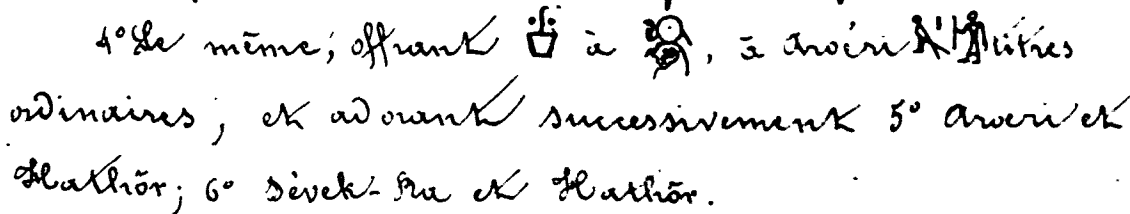 4° Le même; offrant à , à Aroéri titres
ordinaires; et adorant successivement 5° Aroéri et
Hathôr; 6° Sévek-Ra et Hathôr.